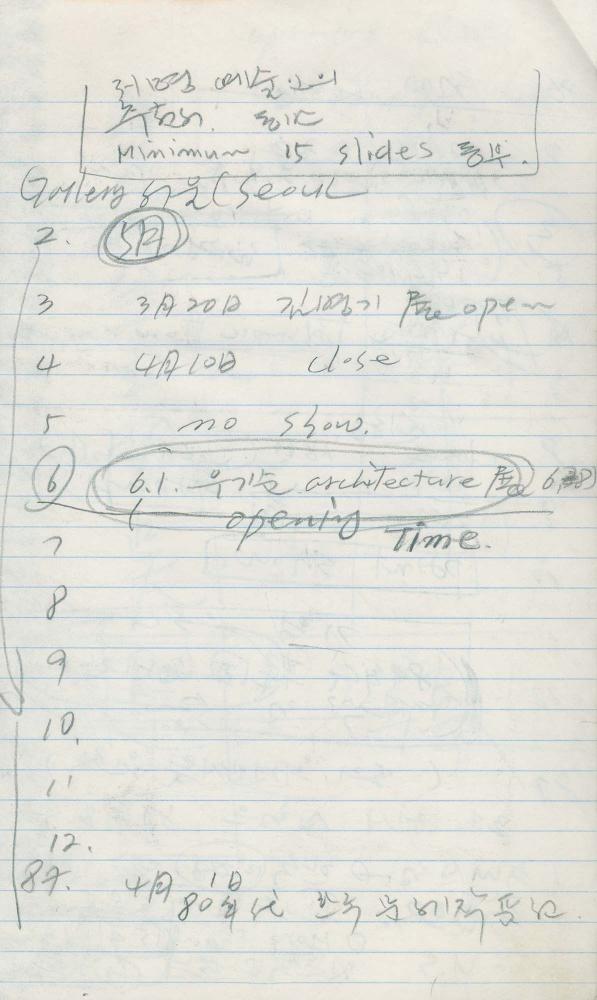 예술인의
Minimum 15 slides 첨부.
Gallery 서울 (Seoul
2. 5月
3 3月20日 김영기 展 open
4 4月10日 close
5 no show.
6 6.1. 우기순 architecture 展
opening Time.
7
8
9
10.
11
12.
87. 4月 1日
80年代 한국 문제작품전.